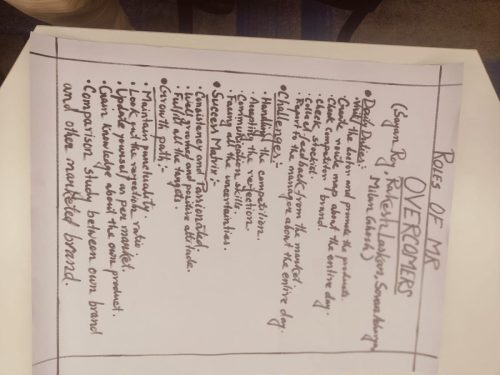 ROLES OF MR
OVERCOMERS
(Sayan Dey, Rakesh Laskar, Suman
Milan Ghosh)
• Daily Duties:-
• Visit the doctor and promote the products.
• Create route map about the entire day.
• Check competitor brand.
• Check stockist.
• Collect feedback from the market.
• Report to the manager about the entire day.
• Challenges:-
• Handling the competition.
• Accepting the rejection.
• Communication skills
• Facing all the uncertainties.
• Success Matrix:-
• Consistency and Passionated.
• Well groomed and positive attitude.
• Fulfill all the targets.
• Growth path:-
• Maintain punctuality
• Look out the rejection ratio
• Update yourself as per market.
• Gain knowledge about the own product.
• Comparison study between own brand
and other marketed brand.